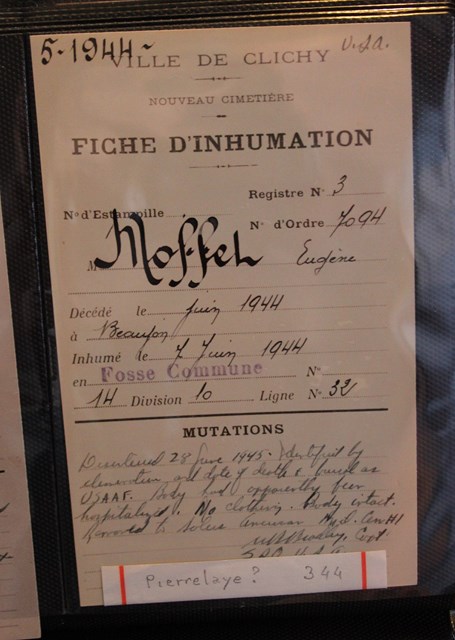 5-1944-
U.S.A.
VILLE DE CLICHY
NOUVEAU CIMETIÈRE
FICHE D'INHUMATION
Registre N° 3
N° d'Estampille
N° d'Ordre 7094
M Moffet Eugène
Décédé le juin 1944
à Beaujon
Inhumé le 7 Juin 1944
en Fosse Commune N°
14 Division 10 Ligne N° 32
MUTATIONS
Disinterred 28 June 1945. Identified by
elimination, and date of death & burial as
USAAF. Body had apparently been
hospitalized. No clothing. Body intact.
to
Capt.
Pierrelaye? 344